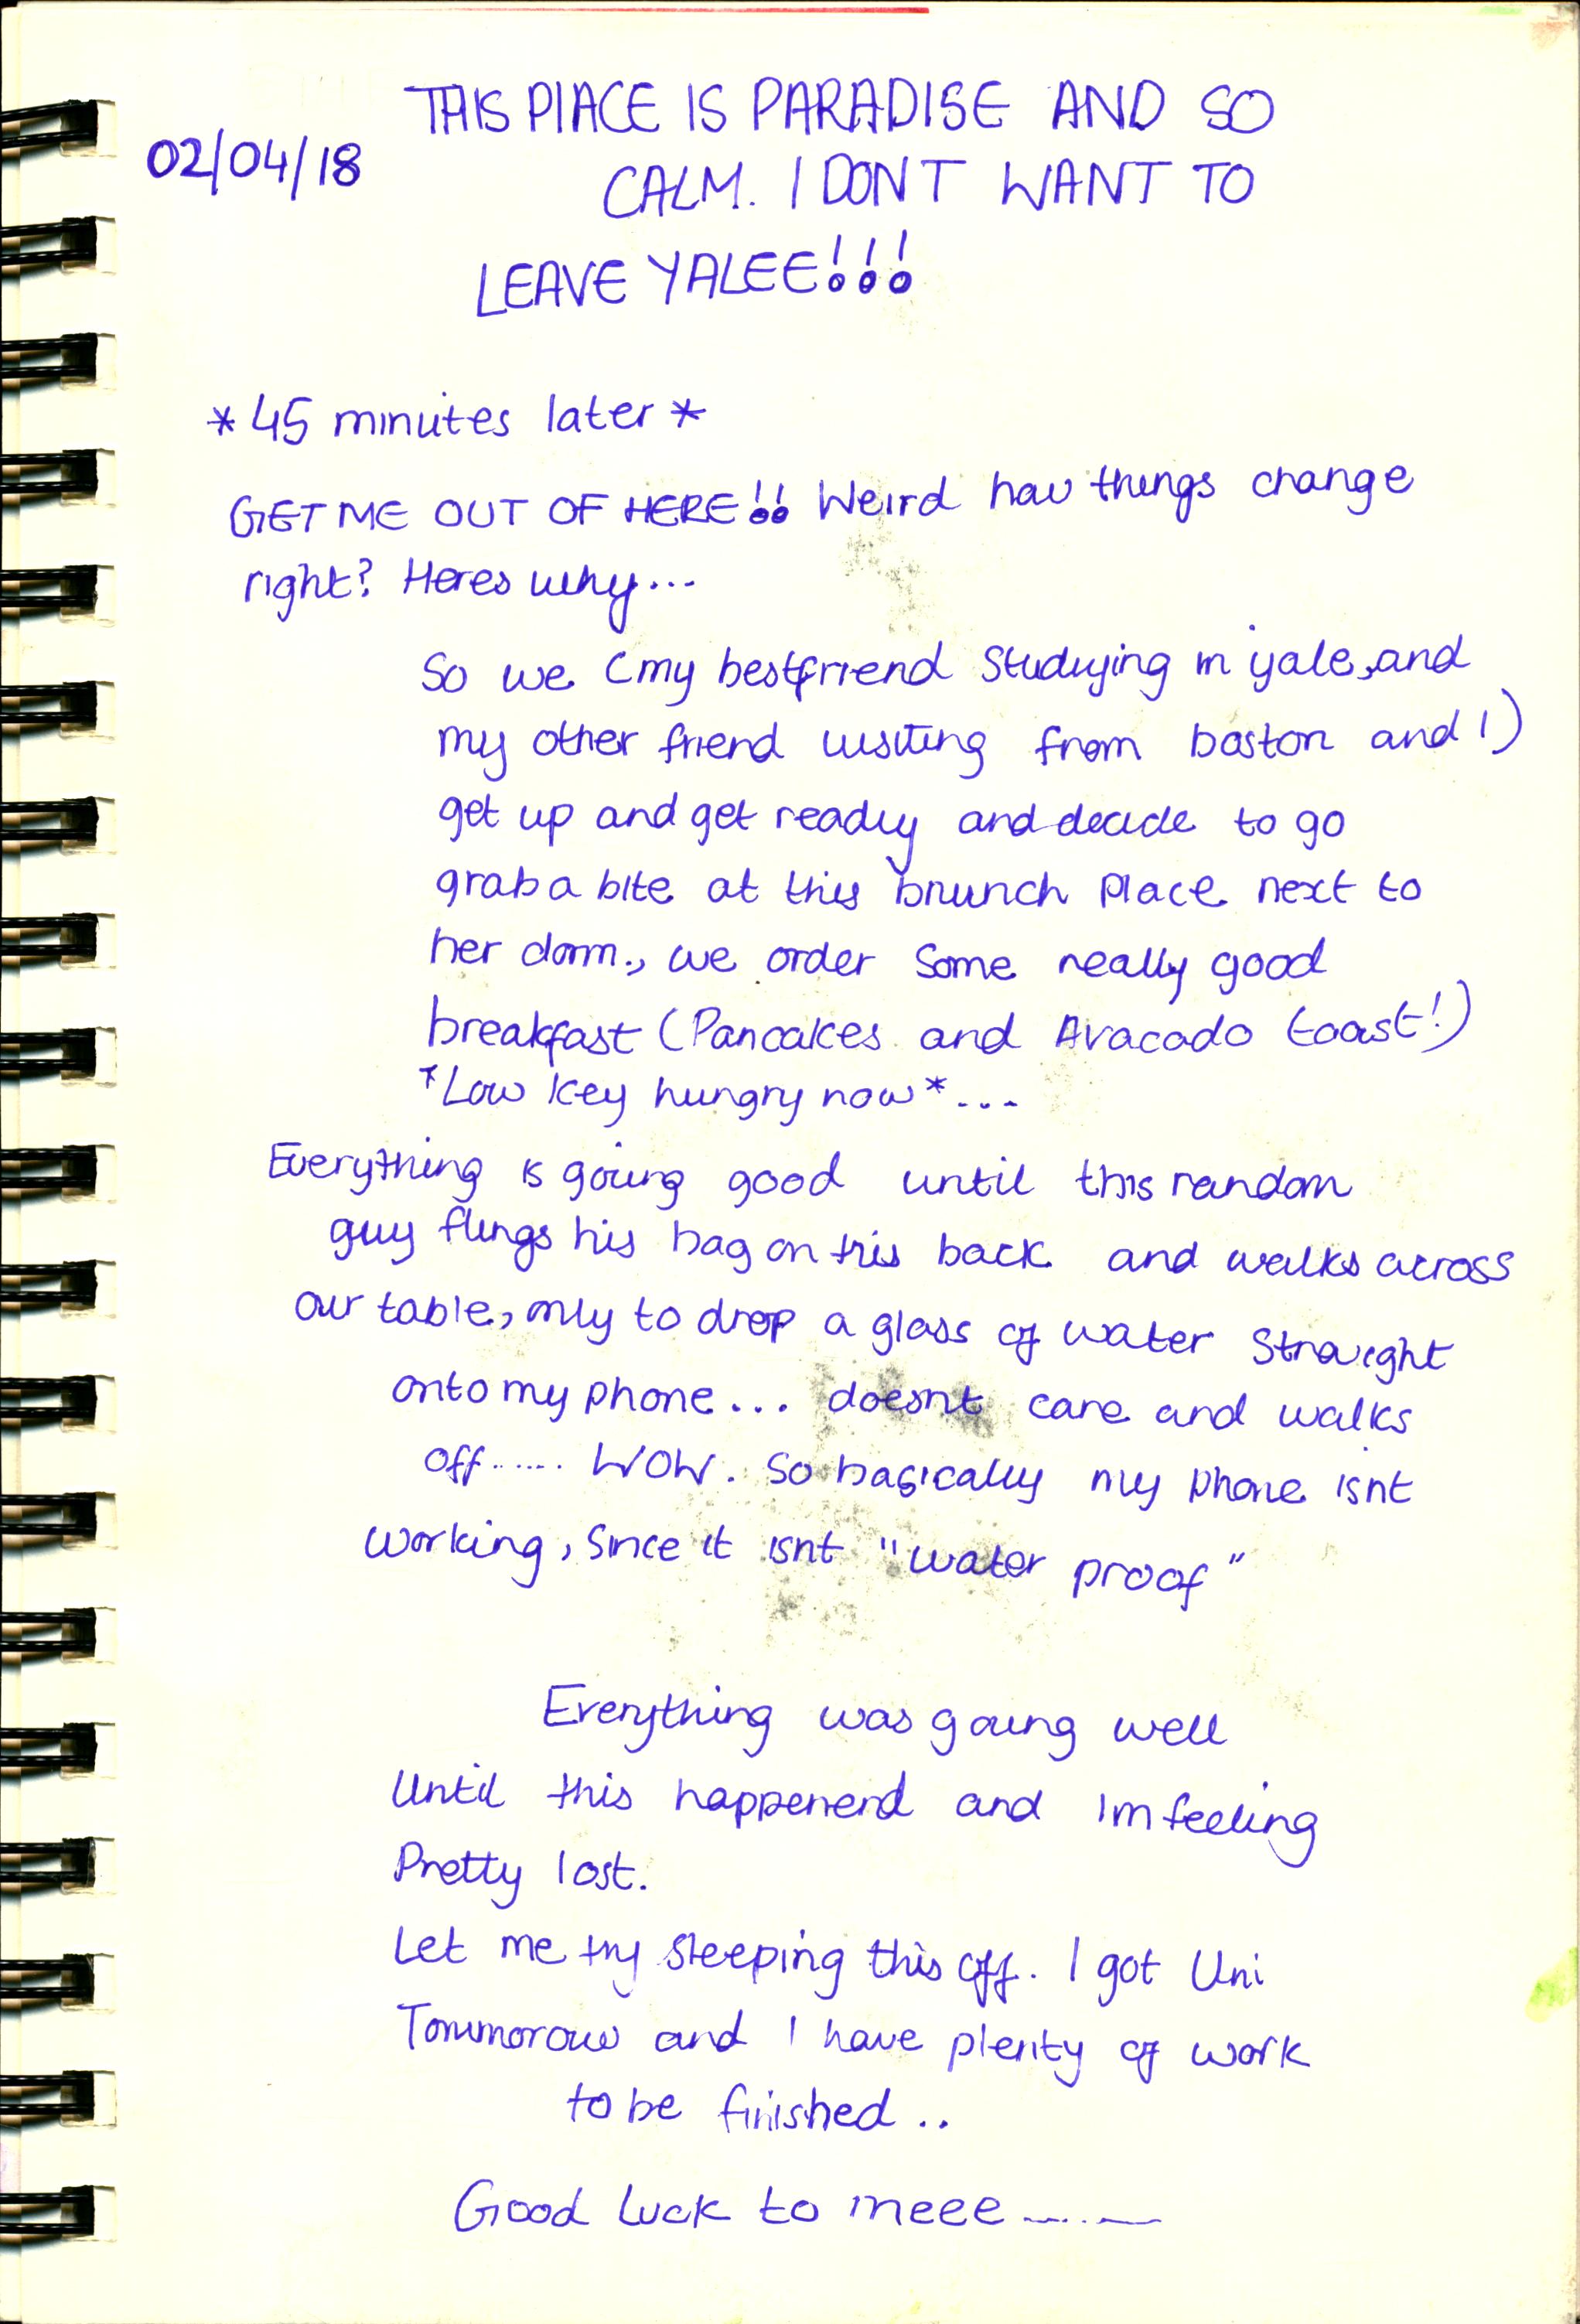 THIS PlACE IS PARADISE AND SO
02/04/18
CALM. I DONT WANT TO
LEAVE YALEE!!!
*45 minutes later*
GET ME OUT OF HERE!! Weird how things change
right? Heres why...
So we (my bestfriend studying in yale, and
my other friend visiting from boston and I)
get up and get ready and decide to go
grab a bite at this brunch place next to
her dorm., we order some really good
breakfast (Pancakes and Avacado toast!)
*Low key hungry now*...
Everything is going good until this random
guy flings his bag on his back and walks across
our table, only to drop a glass of water straight
onto my phone... doesnt care and walks
off...... WOW. So basically my phone isnt
working, since it isnt "water proof"
Everything was going well
Until this happenend and Im feeling
Pretty lost.
Let me try sleeping this off. I got Uni
Tommorow and I have plenty of work
to be finished..
Good luck to meee......